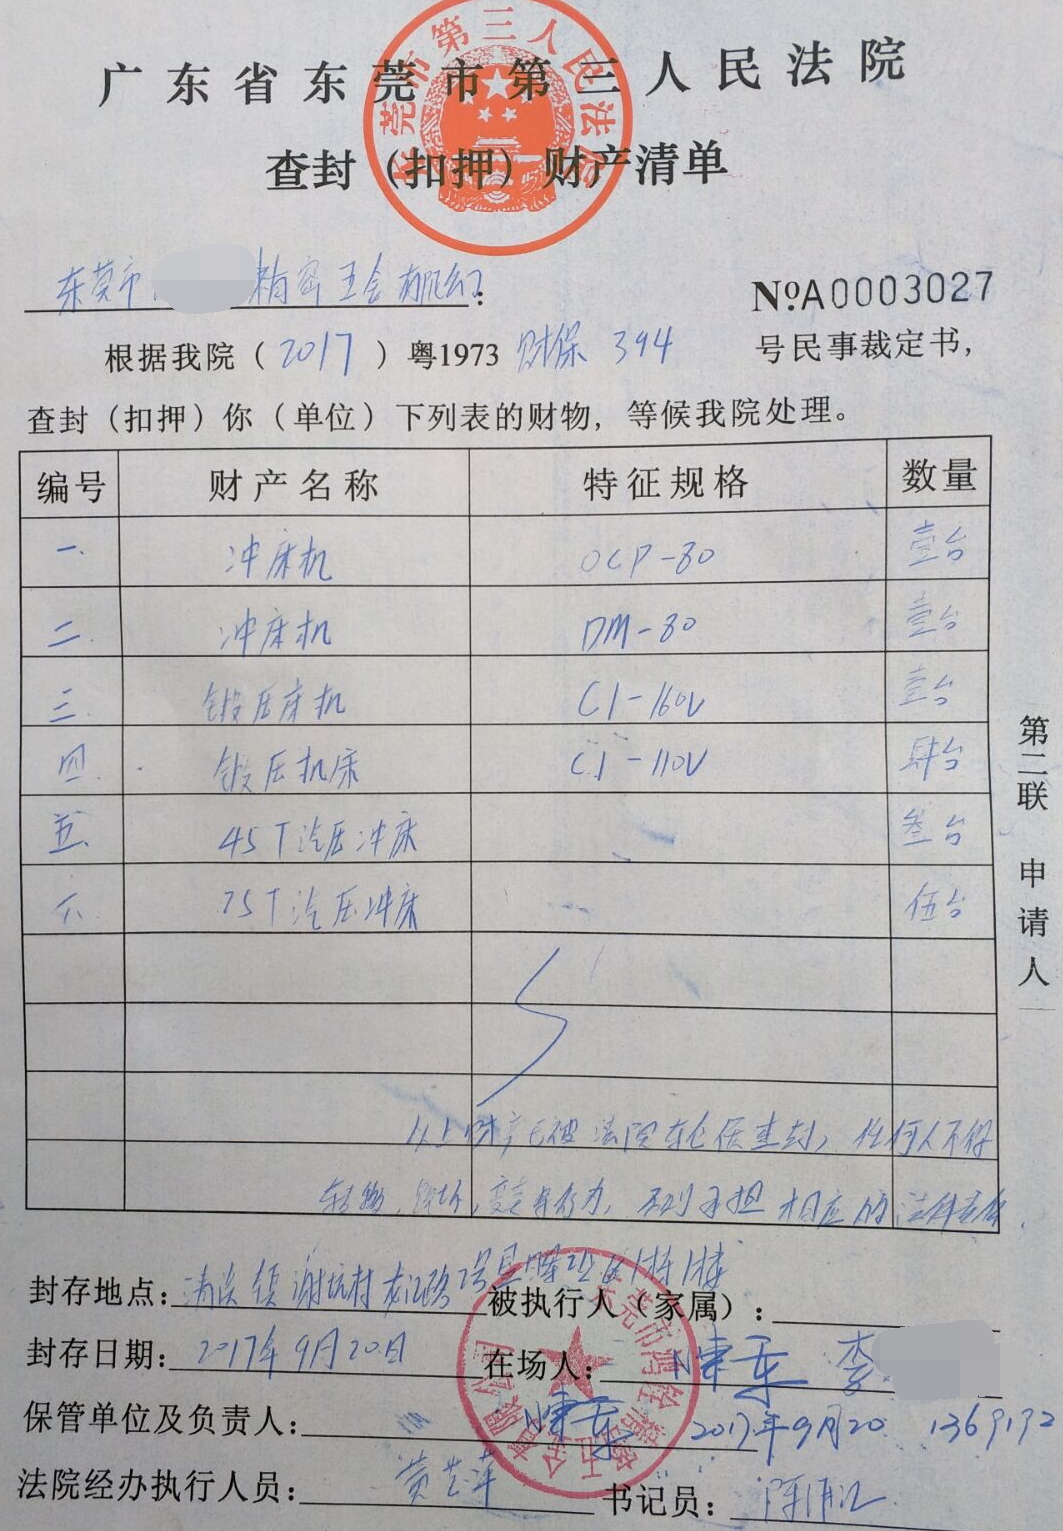 广东省东莞市第三人民法院
查封（扣押）财产清单
东莞市 精密五金有限公司：
№A0003027
根据我院（2017）粤1973财保394号民事裁定书，
查封（扣押）你（单位）下列表的财物，等候我院处理。
编号 财产名称 特征规格 数量
一、 冲床机 OCP-80 壹台
二、 冲床机 DM-80 壹台
三、 锻压床机 C1-160V 壹台
四、 锻压机床 C1-110V 肆台
五、 45T汽压冲床 叁台
六、 75T汽压冲床 伍台
以上财产已被法院轮侯查封，任何人不得
转移，毁坏，变卖 否则承担相应的法律责任
第二联 申请人
封存地点：清溪镇谢坑村
被执行人（家属）：
封存日期：2017年9月20日
在场人：陈 李
保管单位及负责人：陈 2017年9月20 1369192
法院经办执行人员：黄艺萍
书记员：陈